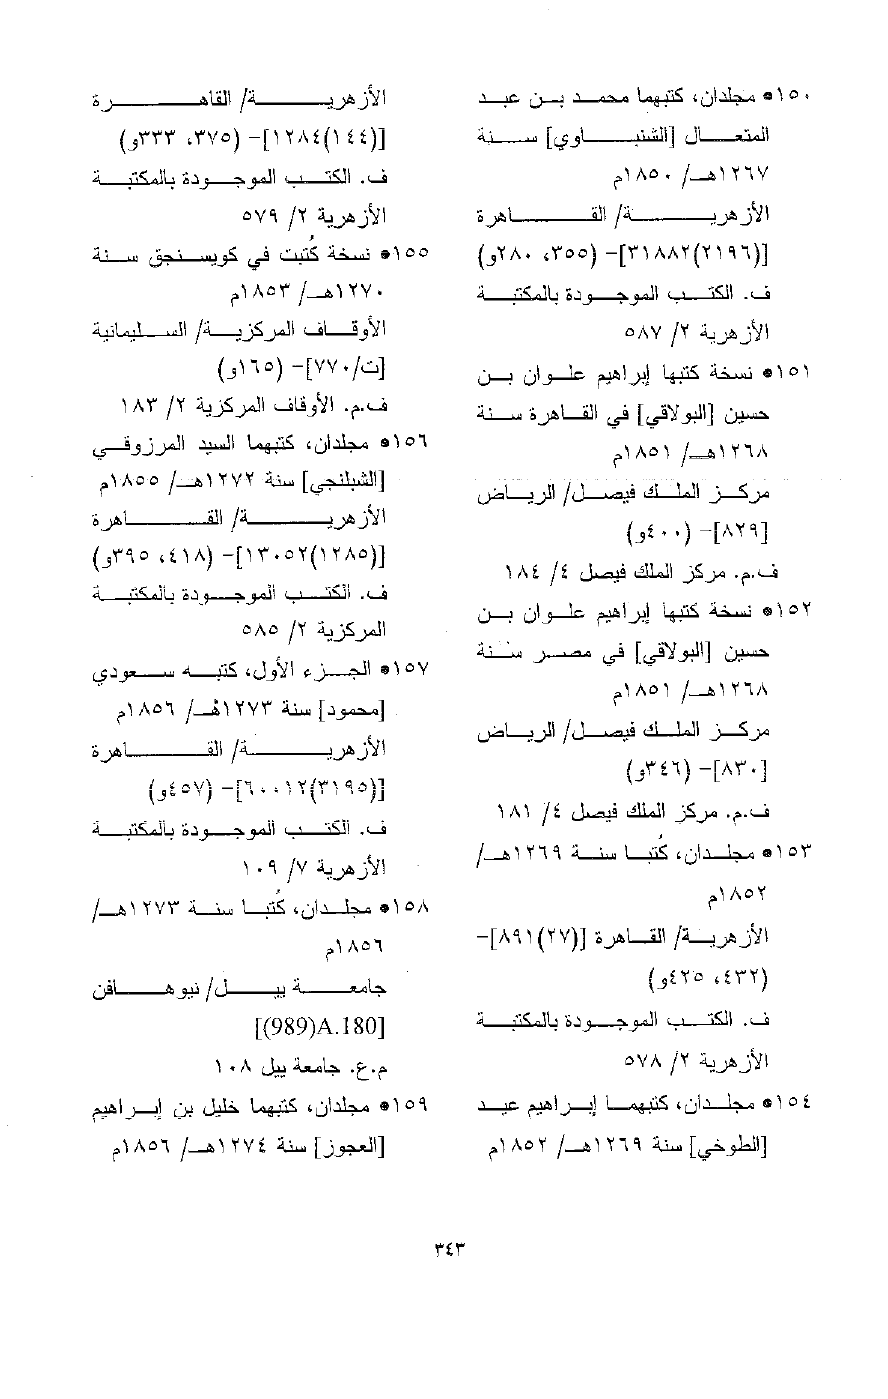 ١٥٠* مجلدان، كتبهما محمد بن عبد
المتعال [الشنباوي] سنة
١٢٦٧هـ/ ١٨٥٠م
الأزهرية/ القاهرة
[(٢١٩٦)٣١٨٨٢]- (٣٥٥، ٢٨٠و)
ف. الكتب الموجودة بالمكتبة
الأزهرية ٢/ ٥٨٧
١٥١* نسخة كتبها إبراهيم علوان بن
حسين [البولاقي] في القاهرة سنة
١٢٦٨هـ/ ١٨٥١م
مركز الملك فيصل/ الرياض
[٨٢٩]- (٤٠٠و)
ف.م. مركز الملك فيصل ٤/ ١٨٤
١٥٢* نسخة كتبها إبراهيم علوان بن
حسين [البولاقي] في مصر سنة
١٢٦٨هـ/ ١٨٥١م
مركز الملك فيصل/ الرياض
[٨٣٠]- (٣٤٦و)
ف.م. مركز الملك فيصل ٤/ ١٨١
١٥٣* مجلدان، كُتبا سنة ١٢٦٩هـ/
١٨٥٢م
الأزهرية/ القاهرة [(٢٧)٨٩١]-
(٤٣٢، ٤٢٥و)
ف. الكتب الموجودة بالمكتبة
الأزهرية ٢/ ٥٧٨
١٥٤* مجلدان، كتبهما إبراهيم عيد
[الطوخي] سنة ١٢٦٩هـ/ ١٨٥٢م
الأزهرية/ القاهرة
[(١٤٤)١٢٨٤]- (٣٧٥، ٣٣٣و)
ف. الكتب الموجودة بالمكتبة
الأزهرية ٢/ ٥٧٩
١٥٥* نسخة كُتبت في كويسنجق سنة
١٢٧٠هـ/ ١٨٥٣م
الأوقاف المركزية/ السليمانية
[ت/٧٧٠]- (١٦٥و)
ف.م. الأوقاف المركزية ٢/ ١٨٣
١٥٦* مجلدان، كتبهما السيد المرزوقي
[الشبلنجي] سنة ١٢٧٢هـ/ ١٨٥٥م
الأزهرية/ القاهرة
[(١٢٨٥)١٣٠٥٢]- (٤١٨، ٣٩٥و)
ف. الكتب الموجودة بالمكتبة
المركزية ٢/ ٥٨٥
١٥٧* الجزء الأول، كتبه سعودي
[محمود] سنة ١٢٧٣هـ/ ١٨٥٦م
الأزهرية/ القاهرة
[(٣١٩٥)٦٠٠١٢]- (٤٥٧و)
ف. الكتب الموجودة بالمكتبة
الأزهرية ٧/ ١٠٩
١٥٨* مجلدان، كُتبا سنة ١٢٧٣هـ/
١٨٥٦م
جامعة ييل/ نيوهافن
[(989)A.180]
م.ع. جامعة ييل ١٠٨
١٥٩* مجلدان، كتبهما خليل بن إبراهيم
[العجوز] سنة ١٢٧٤هـ/ ١٨٥٦م
٣٤٣